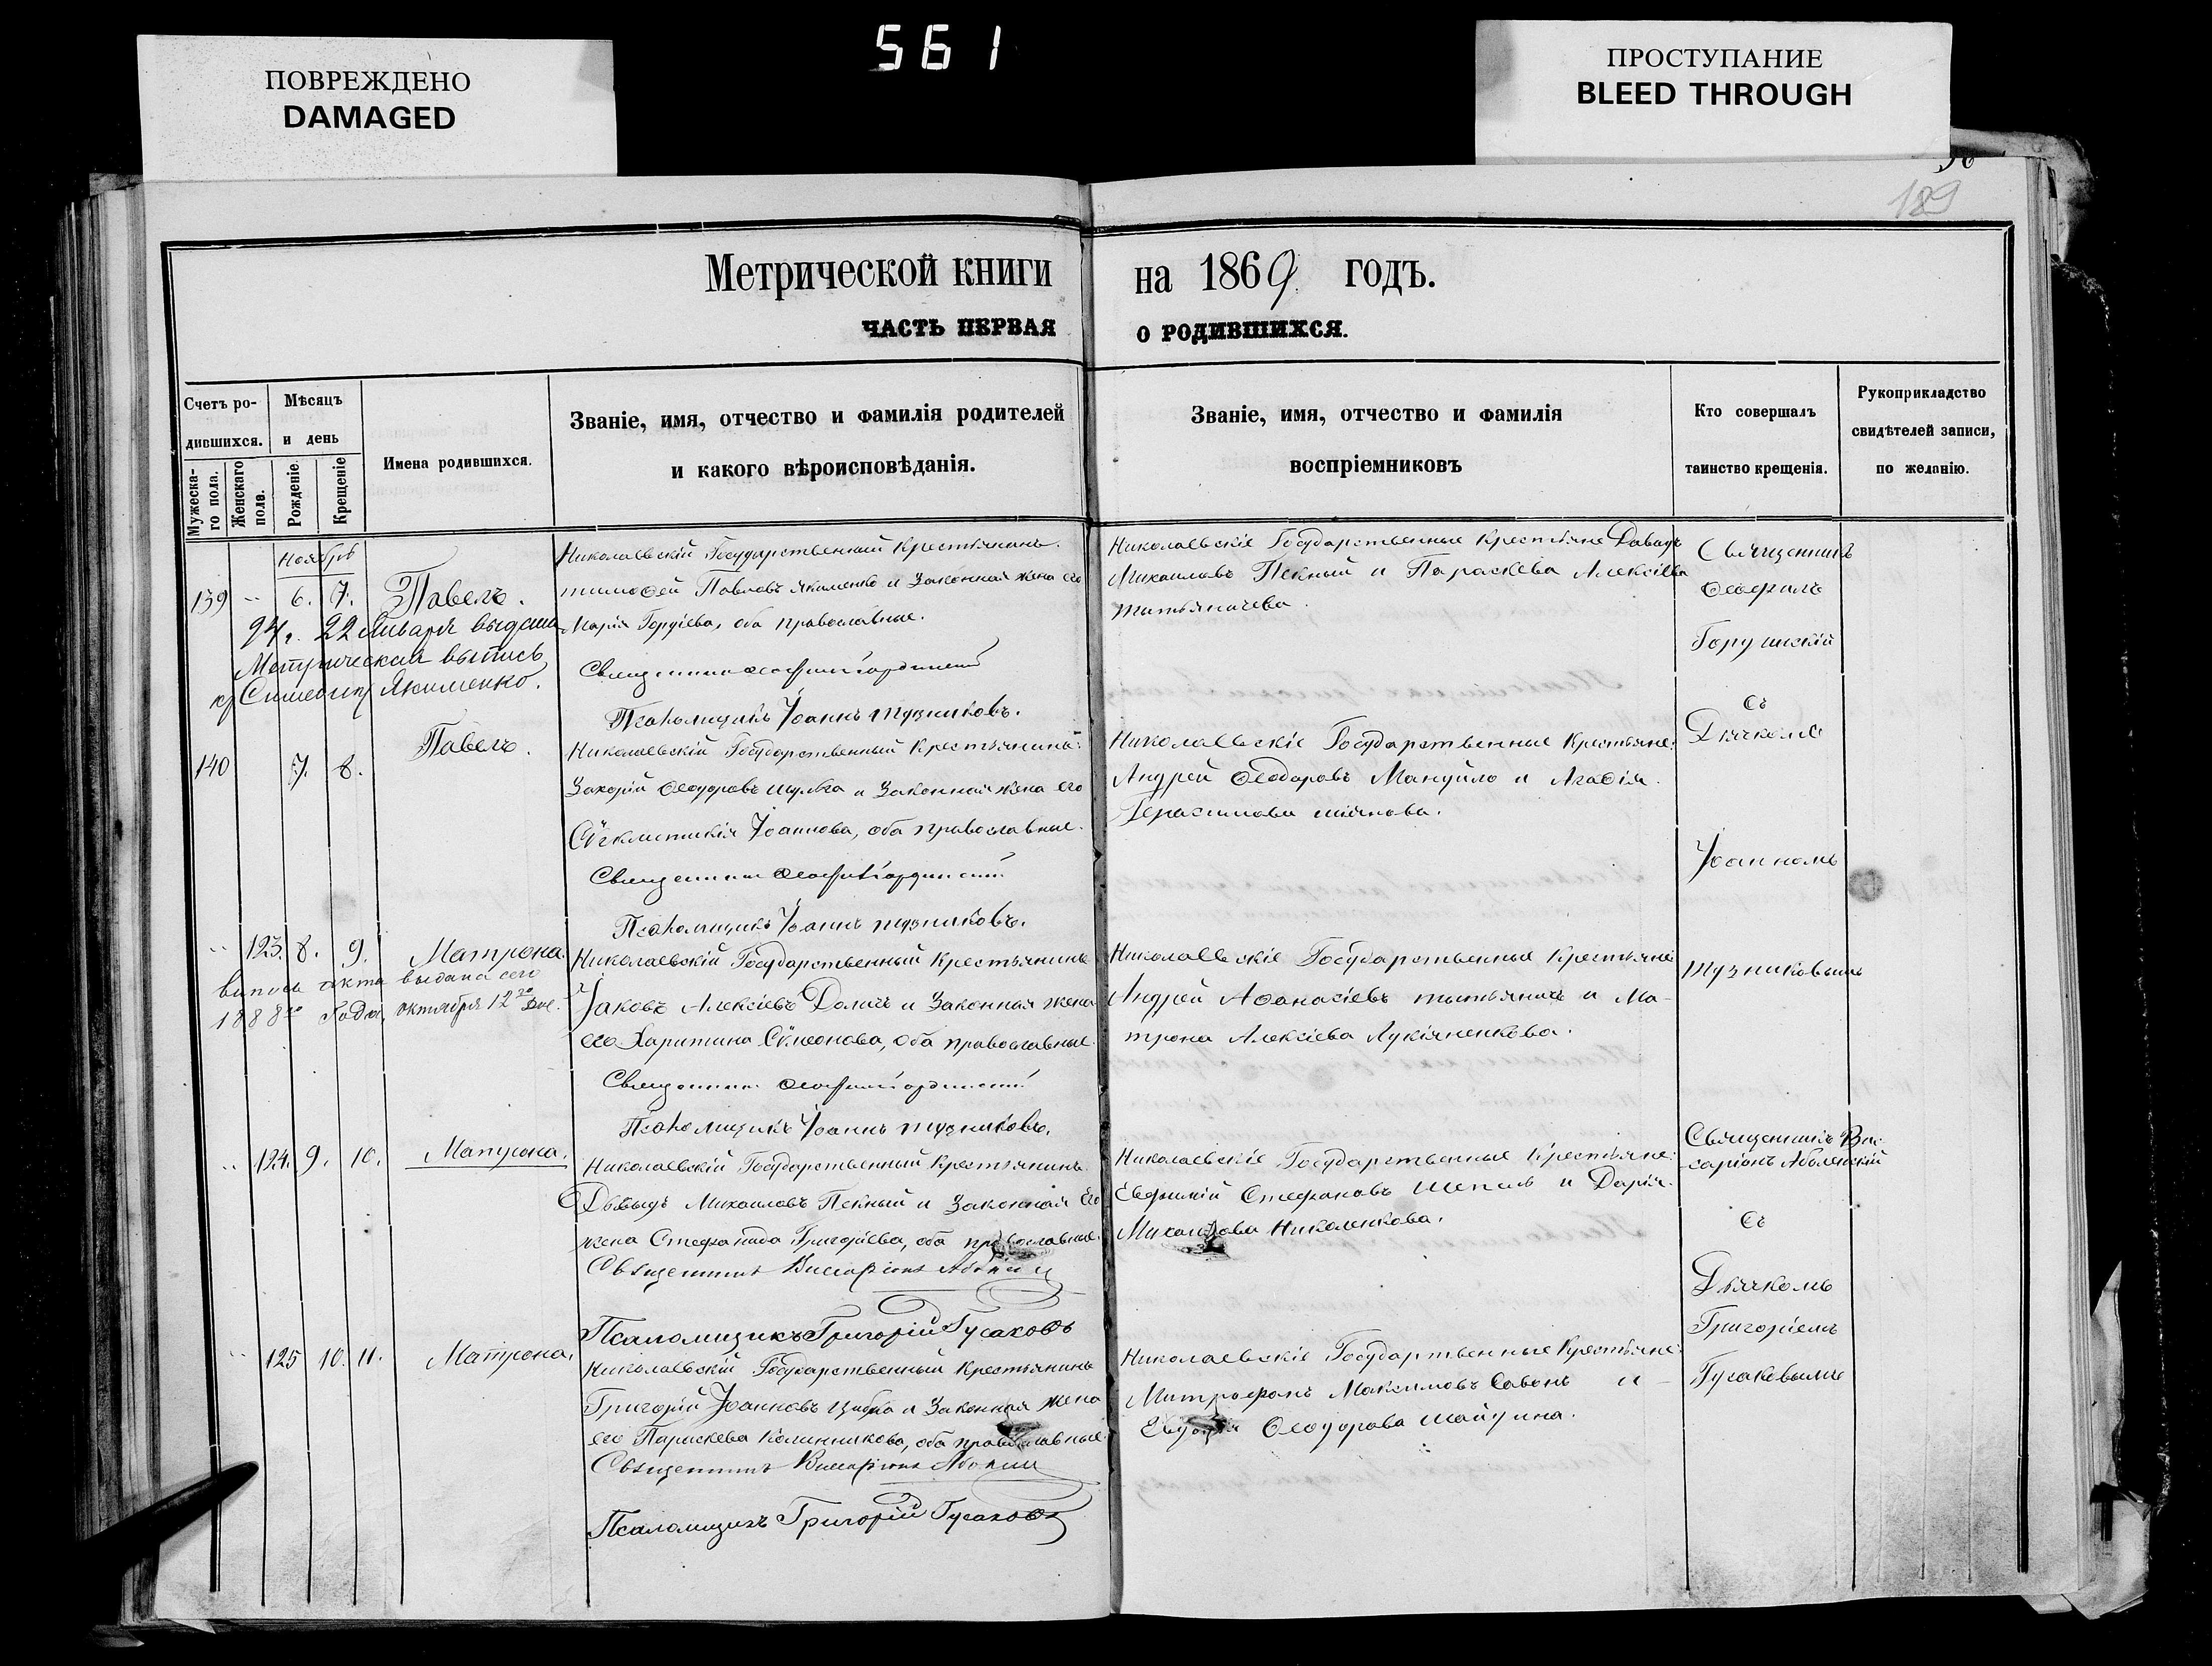 561
ПОВРЕЖДЕНО
DAMAGED
ПРОСТУПАНИЕ
BLEED THROUGH
189
Метрической книги на 1869 годъ.
ЧАСТЬ ПЕРВАЯ О РОДИВШИХСЯ.
Счетъ родившихся.
Мужескаго пола.
Женскаго пола.
Мѣсяцъ и день
Рожденіе.
Крещеніе
Имена родившихся.
Званіе, имя, отчество и фамилія родителей
и какого вѣроисповѣданія.
Званіе, имя, отчество и фамилія
воспріемниковъ
Кто совершалъ
таинство крещенія.
Рукоприкладство
свидѣтелей записи,
по желанію.
Ноябрь
139 6. 7. Павелъ.
Николаевскій Государственный Крестьянинъ
Тимоѳей Павловъ Якименко и Законная жена его
Марія Гордіева, оба православные.
Священникъ
Псаломщикъ Іоаннъ Тузниковъ.
Николаевскіе Государственные Крестьяне Давидъ
Михаиловъ Пекный и Параскева Алексіева
94 г. 22 Января выдана
Метрическая выпись
кр Симеону Якименко.
140 7. 8. Павелъ.
Николаевскій Государственный Крестьянинъ
Захарій Ѳеодоровъ Шульга и Законная жена его
Сѵнклитикія Іоаннова, оба православные.
Священникъ
Псаломщикъ Іоаннъ Тузниковъ.
Николаевскіе Государственные Крестьяне:
Андрей Ѳеодоровъ Мануйло и Агаѳія
Герасимова
Священникъ
Ѳеофилъ
съ
Дьячкомъ
Іоанномъ
Тузниковымъ
123. 8. 9. Матрона.
выпись акта выдана сего
1888го года, октября 12го дне.
Николаевскій Государственный Крестьянинъ
Іаковъ Алексіевъ Долич и Законная жена
его Харитина Сѵмеонова, оба православные.
Священникъ
Псаломщикъ Іоаннъ Тузниковъ.
Николаевскіе Государственные Крестьяне
Андрей Аѳанасіевъ Тытьяничъ и Ма-
трона Алексіева Лукіяненкова.
124. 9. 10. Матрона.
Николаевскій Государственный Крестьянинъ
Давыдъ Михаиловъ Пекный и Законная Его
жена Стефанида Григоріева, оба православные.
Священникъ Виссаріонъ
Псаломщикъ Григорій Гусаковъ
Николаевскіе Государственные Крестьяне:
Евфимій Стефановъ Шепель и Дарія
Михаилова Николенкова.
Священникъ Вис-
саріонъ
съ
Дьячкомъ
Григоріемъ
Гусаковымъ
125 10. 11. Матрона.
Николаевскій Государственный Крестьянинъ
Григорій Іоанновъ Цибка и Законная жена
его Параскева Калинникова, оба православные
Священникъ Виссаріонъ
Псаломщикъ Григорій Гусаковъ
Николаевскіе Государственные Крестьяне:
Митрофанъ Максимовъ Савонъ и
Евдокія Ѳеодорова